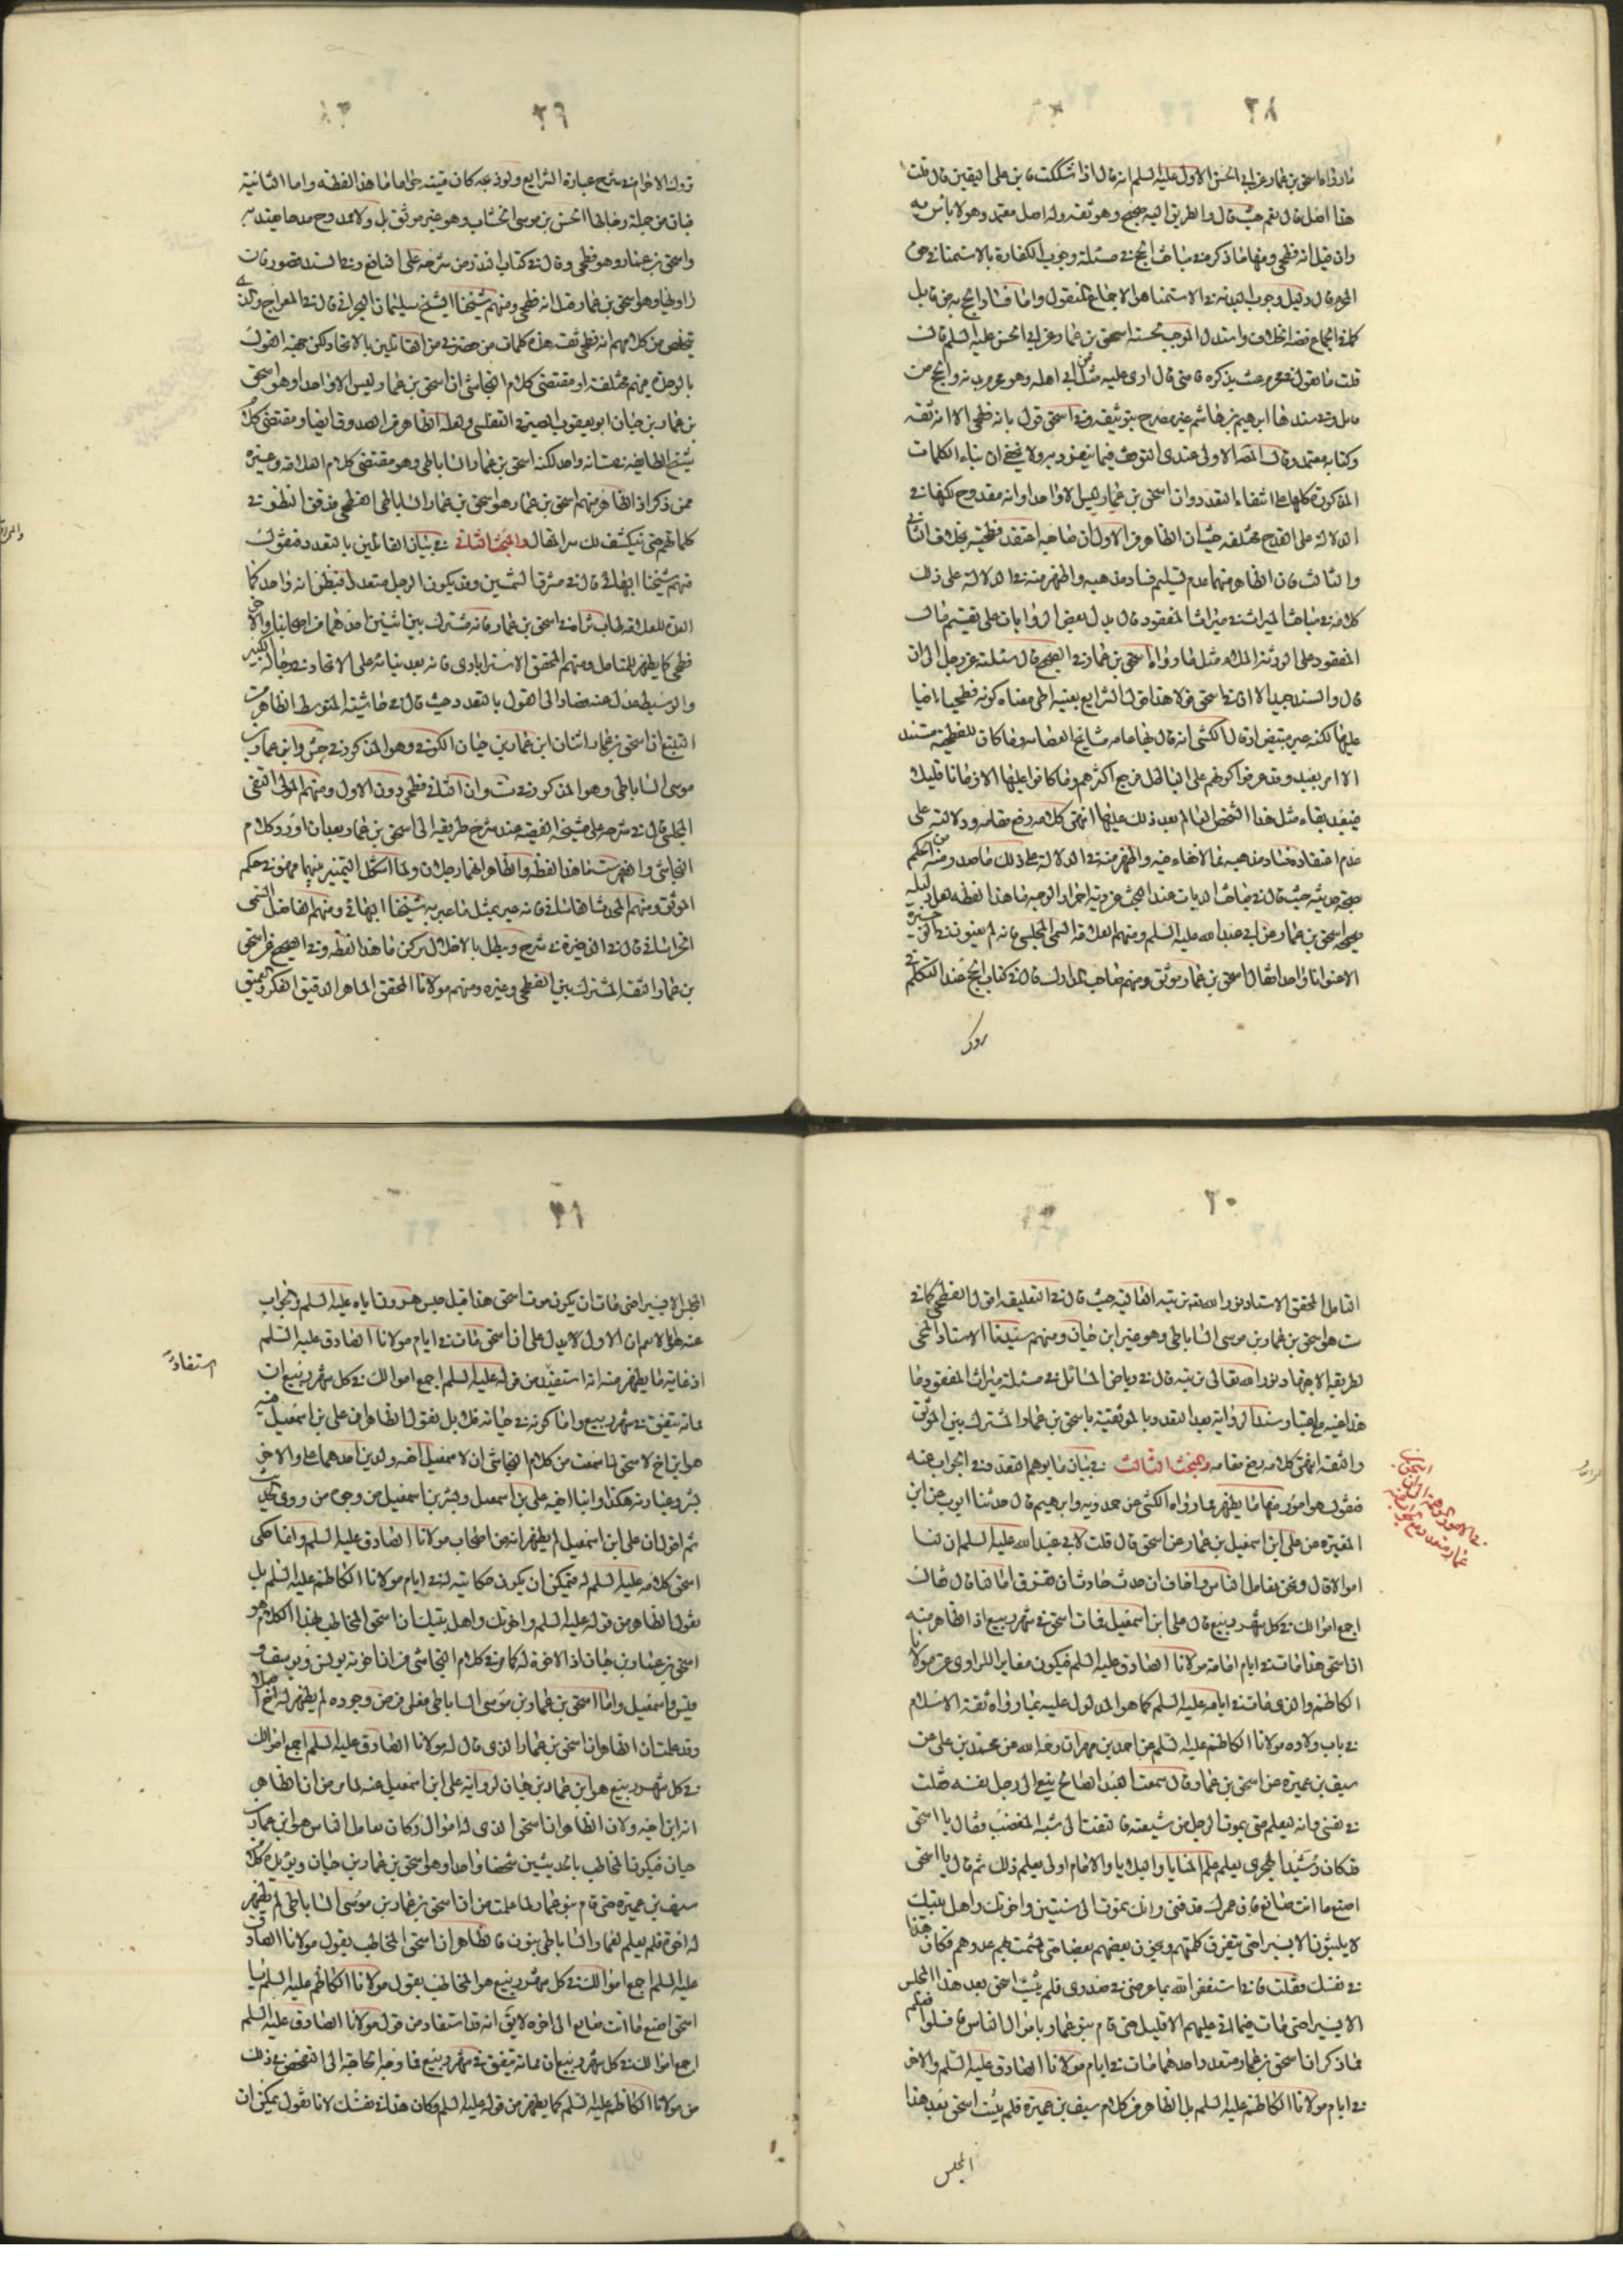 ٣٨
ما رواه اسحق بن عمار عن ابى الحسن الاول عليه السلم انه قال اذا شككت فابن على اليقين قال قلت
هذا اصل قال نعم حيث قال والطريق اليه صحيح وهو ثقة وله اصل معتمد وهو لا باس به
وان قيل انه فطحى ومنها ما ذكره فى مباحث الحج فى مسئلة وجوب الكفارة بالاستمناء فى حق
المحرم قال دليل وجوب البدنة فى الاستمناء هو الاجماع المنقول واما فساد الحج به من قابل
كلها اجماع فضه الخلاف واستدل الموجب بحسنة اسحق بن عمار عن ابى الحسن عليه السلم قال
قلت ما تقول فى محرم عبث بذكره فامنى قال ارى عليه مثل ما على من اتى اهله وهو محرم بدنة والحج من
قابل وفى سندها ابرهيم بن هاشم غير مصرح بتوثيقه وفى اسحق قول بانه فطحى الا انه ثقة
وكتابه معتمد وقال العلامة الاولى عندى التوقف فيما ينفرد به ولا يخفى ان بناء الكلمات
المذكورة كلها على انتفاء التعدد وان اسحق بن عمار ليس الا واحدا وانه مقدوح لكنها فى
الدلالة على القدح مختلفة حيث ان الظاهر من الاول ان صاحبه اعتقد فطحيته بخلاف الثانى
والثالث فان الظاهر منهما عدم تسليم فساد مذهبه واظهر منه فى الدلالة على ذلك
كلامه فى مباحث الميراث فى ميراث المفقود قال يدل بعض الروايات على تقسيم مال
المفقود على الورثة الملاء مثل ما رواه اسحق بن عمار فى الصحيح قال سئلته عن رجل الى ان
قال والسند جيد الا ان فى اسحق قولا هذا قول الشرايع بعينه اى معناه كونه فطحيا
عليها لكنه غير مبتض اذ قال الكشى انه قال بها عامة مشايخ العصابة وما كان للفطحية مستند
الا امر بعيد وقد عرفوا كونهم على الباطل فرجع اكثرهم وما كانوا عليها الا زمانا قليلا
فيبعد بقاء مثل هذا الشخص العالم بعد ذلك عليها انتهى كلامه رفع مقامه ودلالته على
عدم اعتقاده فساد مذهبه مما لا خفاء فيه واظهر منه فى الدلالة على ذلك ما صدر منه من الحكم
بصحة حديثه حيث قال فى مباحث الديات عند البحث عن دية احمرار الوجه ما هذا لفظه لعل دليله
صحيحة اسحق بن عمار عن ابى عبد الله عليه السلم ومنهم العلامة السمى المجلسى فانه لم يعنون فى الوجيزة
الا عنوانا واحدا فقال اسحق بن عمار موثق ومنهم صاحب المدارك قال فى كتاب الحج عند التكلم فى
روك
٣٩
تروك الاحرام فى شرح عبارة الشرايع ولو ذبحه كان ميتة حراما ما هذا لفظه واما الثانية
فبان من جملة رجالها الحسن بن موسى الخشاب وهو غير موثق بل ولا ممدوح مدحا يعتد به
واسحق بن عمار وهو فطحى وقال فى كتاب النذر من شرحه على النافع وفى السند قصور فان
راويها وهو اسحق بن عمار قيل انه فطحى ومنهم شيخنا الشيخ سليمان البحرانى قال فى المعراج والذى
يتلخص من كلامهم انه فطحى ثقة هذه كلمات من حضرنى من القائلين بالاتحاد لكن جهة القول
بالوحدة منهم مختلفة اذ مقتضى كلام النجاشى ان اسحق بن عمار ليس الا واحدا وهو اسحق
بن عمار بن حيان ابو يعقوب الصيرفى التغلبى ولعله الظاهر من الصدوق ايضا ومقتضى كلام
شيخ الطايفة فى ست انه واحد لكنه اسحق بن عمار الساباطى وهو مقتضى كلام العلامة وغيره
ممن ذكر اذ الظاهر منهم اسحق بن عمار هو اسحق بن عمار الساباطى الفطحى فدقق النظر فى
كلماتهم حتى تنكشف لك سر المقال والمبحث الثانى فى بيان القائلين بالتعدد فنقول
منهم شيخنا البهائى قال فى مشرق الشمسين وقد يكون الرجل متعددا فيظن انه واحد كما
اتفق للعلامة طاب ثراه فى اسحق بن عمار فانه مشترك بين اثنين احدهما من اصحابنا والآخر
فطحى كما يظهر للمتامل ومنهم المحقق الاسترابادى فانه بعد بنائه على الاتحاد فى رجاله الكبير
والوسيط عدل عنه فصار الى القول بالتعدد حيث قال فى حاشيته المتوسط الظاهر من
التتبع ان اسحق بن عمار اثنان ابن عمار بن حيان الكوفى وهو المذكور فى جش وابن عمار بن
موسى الساباطى وهو المذكور فى ست وان الثانى فطحى دون الاول ومنهم المولى التقى
المجلسى قال فى شرحه على مشيخة الفقيه عند شرح طريقه الى اسحق بن عمار بعد ان اورد كلام
النجاشى والفهرست ما هذا لفظه والظاهر انهما رجلان ولما اشكل التمييز بينهما فهو فى حكم
الموثق ومنهم المحدث القاشانى فانه عبر بمثل ما عبر به شيخنا البهائى ومنهم الفاضل السمى
الخراسانى قال فى الذخيرة فى شرح ويبطل بالاخلال بركن ما هذا لفظه وفى الصحيح عن اسحق
بن عمار الثقة المشترك بين الفطحى وغيره ومنهم مولانا المحقق الماهر الدقيق الفكر العميق
٤٠
التامل المحقق الاستاد نور الله تربته الفاقيه حيث قال فى التعليقة اقول الفطحى كما فى
ست هو اسحق بن عمار بن موسى الساباطى وهو غير ابن حيان ومنهم سيدنا الاستاد المحى
لطريقة الاجتهاد نور الله تعالى تربته قال فى رياض المسائل فى مسئلة ميراث المفقود وما
هذا عينه مع اعتبار سند الرواية بعد التعدد بالموثقية باسحق بن عمار المشترك بين الموثق
والثقة انتهى كلامه رفع مقامه والمبحث الثالث فى بيان ما يوهم التعدد وفى الجواب عنه
فنقول هو امور منها ما يظهر مما رواه الكشى عن حمدويه وابرهيم قال حدثنا ايوب عن ابن
المغيرة عن على ابن اسمعيل بن عمار عن اسحق قال قلت لابى عبد الله عليه السلم ان لنا
اموالا قال ونحن نعامل الناس واخاف ان حدث حادثان تفرق اموالنا قال فقال
اجمع اموالك فى كل شهر ربيع قال على ابن اسمعيل فمات اسحق فى شهر ربيع اذ الظاهر منه
ان اسحق هذا مات فى ايام امامة مولانا الصادق عليه السلم فيكون مغاير الراوى عن مولانا
الكاظم والذى مات فى ايامه عليه السلم كما هو المدلول عليه بما رواه ثقة الاسلام
فى باب ولادة مولانا الكاظم عليه السلم عن احمد بن مهران رحمه الله عن محمد بن على عن
سيف بن عميرة عن اسحق بن عمار قال سمعت العبد الصالح ينعى الى رجل نفسه فقلت
فى نفسى وانه ليعلم متى يموت الرجل من شيعته فالتفت الى شبه المغضب فقال يا اسحق
قد كان رشيد الهجرى يعلم علم المنايا والبلايا والامام اولى بعلم ذلك ثم قال يا اسحق
اصنع ما انت صانع فان عمرك قد فنى وانك تموت الى سنتين واخوتك واهل بيتك
لا يلبثون الا يسيرا حتى تتفرق كلمتهم ويخون بعضهم بعضا حتى يشمت بهم عدوهم فكان هذا
فى نفسك فقلت فانى استغفر الله بما عرض فى صدرى فلم يلبث اسحق بعد هذا المجلس
الا يسيرا حتى مات فما اتى عليهم الا قليل حتى قام بنو عمار باموال الناس فافلسوا فعلم
مما ذكر ان اسحق بن عمار متعدد واحدهما مات فى ايام مولانا الصادق عليه السلم والآخر
فى ايام مولانا الكاظم عليه السلم بل الظاهر من كلام سيف بن عميرة فلم يلبث اسحق بعد هذا
المجلس
٤١
المجلس الا يسيرا حتى مات ان يكون موت اسحق هذا قبل حبس هرون اياه عليه السلم والجواب
عنه هو ان الاول لا يدل على ان اسحق مات فى ايام مولانا الصادق عليه السلم
اذ غاية ما يظهر منه انه استفيد من قوله عليه السلم اجمع اموالك فى كل شهر ربيع ان
مماته يتفق فى شهر ربيع واما كونه فى حياته فلا بل نقول الظاهر ان على بن اسمعيل فيه
هو ابن اخ لاسحق لما سمعت من كلام النجاشى ان لاسمعيل اخيه ولدين احدهما على والآخر
بشر وعبارته هكذا وابنا اخيه على بن اسمعيل وبشر بن اسمعيل من وجوه من روى الحديث
ثم اقول ان على ابن اسمعيل لم يظهر انه من اصحاب مولانا الصادق عليه السلم وانما حكى
اسحق كلامه عليه السلم له فيمكن ان يكون حكايته له فى ايام مولانا الكاظم عليه السلم بل
نقول الظاهر من قوله عليه السلم واخوتك واهل بيتك ان اسحق المخاطب بهذا الكلام هو
اسحق بن عمار بن حيان اذ الاخوة له كما مر فى كلام النجاشى من ان اخوته يونس ويوسف و
قيس واسمعيل واما اسحق بن عمار بن موسى الساباطى فعلى فرض وجوده لم يظهر له اخ اصلا
وقد علمت ان الظاهر ان اسحق بن عمار الذى قال له مولانا الصادق عليه السلم اجمع اموالك
فى كل شهر ربيع هو ابن عمار بن حيان لرواية على ابن اسمعيل عنه لما مر من ان الظاهر
انه ابن اخيه ولان الظاهر ان اسحق الذى له اموال وكان تعامل الناس هو ابن عمار بن
حيان فيكون المخاطب بالحديثين شخصا واحدا وهو اسحق بن عمار بن حيان ويؤيده كلام
سيف بن عميرة حتى قام بنو عمار لما علمت من ان اسحق بن عمار بن موسى الساباطى لم يظهر
له اخوة فلم يعلم لعمار الساباطى بنون فالظاهر ان اسحق المخاطب بقول مولانا الصادق
عليه السلم اجمع اموالك فى كل شهر ربيع هو المخاطب بقول مولانا الكاظم عليه السلم يا
اسحق اصنع ما انت صانع الى آخره لا يق انه قد استفاد من قول مولانا الصادق عليه السلم
اجمع اموالك فى كل شهر ربيع ان مماته يتفق فى شهر ربيع فما وجه الحاجة الى التفحص فى ذلك
من مولانا الكاظم عليه السلم كما يظهر من قوله عليه السلم فكان هذا فى نفسك لانا نقول يمكن ان
استفادة